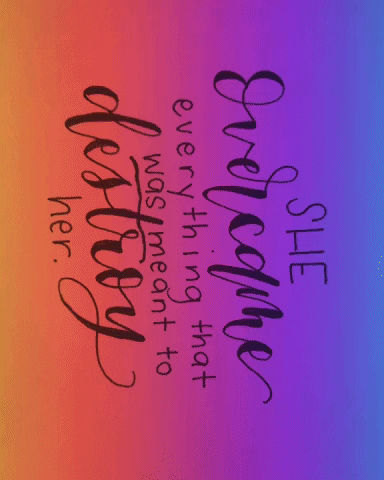 SHE
overcome
everything that
was meant to
destroy
her.